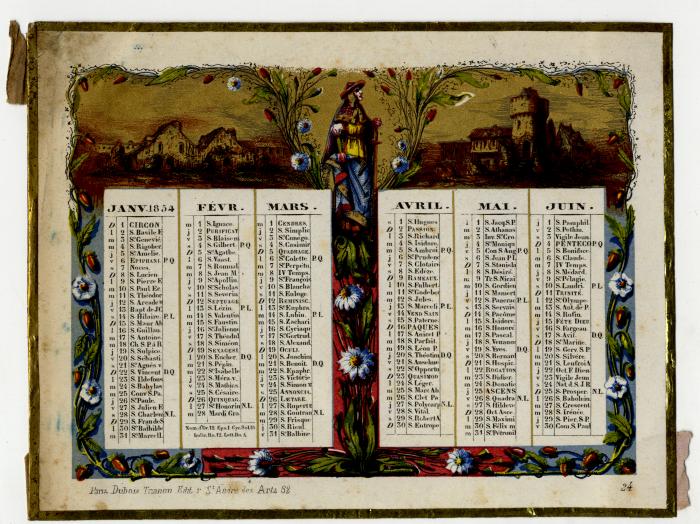 JANV. 1854
D 1 CIRCON
l 2 S. Basile E
m 3 Sᵗᵉ Genevié
m 4 S. Rigobert
j 5 Sᵗᵉ Amelie.
v 6 EPIPHAN P.Q
s 7 Noces.
D 8 S. Lucien
l 9 S. Pierre E
m 10 S. Paul Er
m 11 S. Théodor
j 12 S. Arcade
v 13 Bapt de J.C
s 14 S. Hilaire. P.L
D 15 S. Maur Ab
l 16 S. Guillau
m 17 S. Antoine.
m 18 Ch S. P. à R
j 19 S. Sulpice.
v 20 S. Sébastie
s 21 Sᵗᵉ Agnés v
D 22 S. Vincent D.Q
l 23 S. Ildefons
m 24 S. Babylas
m 25 Conv S. Pa
j 26 Sᵗᵉ Paule.
v 27 S. Julien E
s 28 S. Charlem N.L
D 29 S. Fran de S
l 30 Sᵗᵉ Bathilde
m 31 Sᵗᵉ Marcell.
FÉVR.
m 1 S. Ignace.
j 2 PURIFICAT
v 3 S. Blaise
s 4 S. Gilbert. P.Q
D 5 Sᵗᵉ Agathe.
l 6 S. Vaast.
m 7 S. Romual
m 8 S. Jean M
j 9 Sᵗᵉ Apollin
v 10 Sᵗᵉ Scholas
s 11 S. Severin
D 12 SEPTUAGE
l 13 S. Lézin P.L
m 14 S. Valentin
m 15 S. Faustin.
j 16 Sᵗᵉ Julienn
v 17 S. Théodul
s 18 S. Siméon
D 19 SEXAGESI
l 20 S. Eucher D.Q
m 21 S. Pépin.
m 22 Sᵗᵉ Isabelle
j 23 S. Méra v.
v 24 S. Mathias
s 25 S. Césaire.
D 26 QUINQUAG.
l 27 Sᵗᵉ Honorin N.L
m 28 Mardi Gra
Nom. d'Or 12. Epa. I. Cyc. Sol. 15
Indic. Ro. 12. Lett. Do. A.
MARS.
m 1 CENDRES.
j 2 S. Simplic
v 3 Sᵗᵉ Cunego.
s 4 S. Casimir
D 5 QUADRAG.
l 6 Sᵗᵉ Colette. P.Q
m 7 Sᵗᵉ Perpétu
m 8 IV Temps
j 9 Sᵗᵉ François
v 10 S. Blanche
s 11 S. Euloge.
D 12 REMINISC.
l 13 Sᵗᵉ Euphra
m 14 S. Lubin. P.L
m 15 S. Zachari
j 16 S. Cyriaqu
v 17 Sᵗᵉ Gertrud
s 18 S. Alexand.
D 19 OCULI.
l 20 S. Joachim
m 21 S. Benoit. D.Q
m 22 S. Epaphr.
j 23 S. Victorie
v 24 S. Simon m
s 25 ANNONCIA.
D 26 LÆTARE.
l 27 S. Rupert E
m 28 S. Gontran N.L
m 29 S. Frisque
j 30 S. Rieul.
v 31 Sᵗᵉ Balbine
AVRIL.
s 1 S. Hugues
D 2 PASSION.
l 3 S. Richard
m 4 S. Isidore.
m 5 S. Ambroi P.Q
j 6 S. Prudenc
v 7 S. Clotaire
s 8 S. Edèze.
D 9 RAMEAUX.
l 10 S. Fulbert
m 11 Sᵗᵉ Godebe
m 12 S. Jules.
j 13 S. Marceli P.L
v 14 VEND SAIN
s 15 S. Paterne
D 16 PAQUES
l 17 S. Anicet P
m 18 S. Parfait.
m 19 S. Léon P.
j 20 S. Théotim D.Q
v 21 S. Anselme
s 22 Sᵗᵉ Opportu
D 23 QUASIMOD
l 24 S. Léger.
m 25 S. Marc Ab
m 26 S. Clet Pa
j 27 S. Polycarp N.L
v 28 S. Vital.
s 29 S. Robert A
D 30 S. Eutrope
MAI.
l 1 S. Jacq S. P
m 2 S. Athanas
m 3 Inv. Sᵗᵉ Cro
j 4 Sᵗᵉ Moniqu
v 5 Con S Aug P.Q
s 6 S. Jean P L
D 7 S. Stanisla
l 8 S. Désiré.
m 9 Tr. S. Nicol
m 10 S. Gordien
j 11 S. Mamert
v 12 S. Pancrac P.L
s 13 S. Servais.
D 14 S. Pacôme
l 15 S. Isidore.
m 16 S. Honoré.
m 17 S. Pascal
j 18 S. Venance
v 19 S. Yves. D.Q
s 20 S. Bernard
D 21 S. Hospic.
l 22 ROGATION
m 23 S. Didier.
m 24 S. Donatie
j 25 ASCENS
v 26 S. Quadra N.L
s 27 S. Hildeve
D 28 Oct Asce.
l 29 S. Maximi
m 30 S. Félix m
m 31 Sᵗᵉ Pétronil
JUIN.
j 1 S. Pamphil.
v 2 S. Pothin.
s 3 Vigile Jeun
D 4 PENTECO P.Q
l 5 S. Boniface
m 6 S. Claude.
m 7 IV Temps.
j 8 S. Médard.
v 9 S. Pélagie.
s 10 S. Landri P.L
D 11 TRINITÉ.
l 12 Sᵗᵉ Olympe.
m 13 S. Ant de P.
m 14 S. Rufin.
j 15 FÊTE DIEU
v 16 S. Fargeau
s 17 S. Avit D.Q
D 18 Sᵗᵉ Marine.
l 19 S. Gerv S P
m 20 S. Silvère.
m 21 S. Leufroi
j 22 Oct F Dieu
v 23 Vigile Jeun
s 24 Nat d. S. J. B
D 25 S. Prosper N.L
l 26 S. Babolein
m 27 S. Crescent
m 28 S. Irénée.
j 29 S. Pier S P
v 30 Com S. Paul
Paris Dubois Trianon Edt. r. Sᵗ André des Arts 52
24